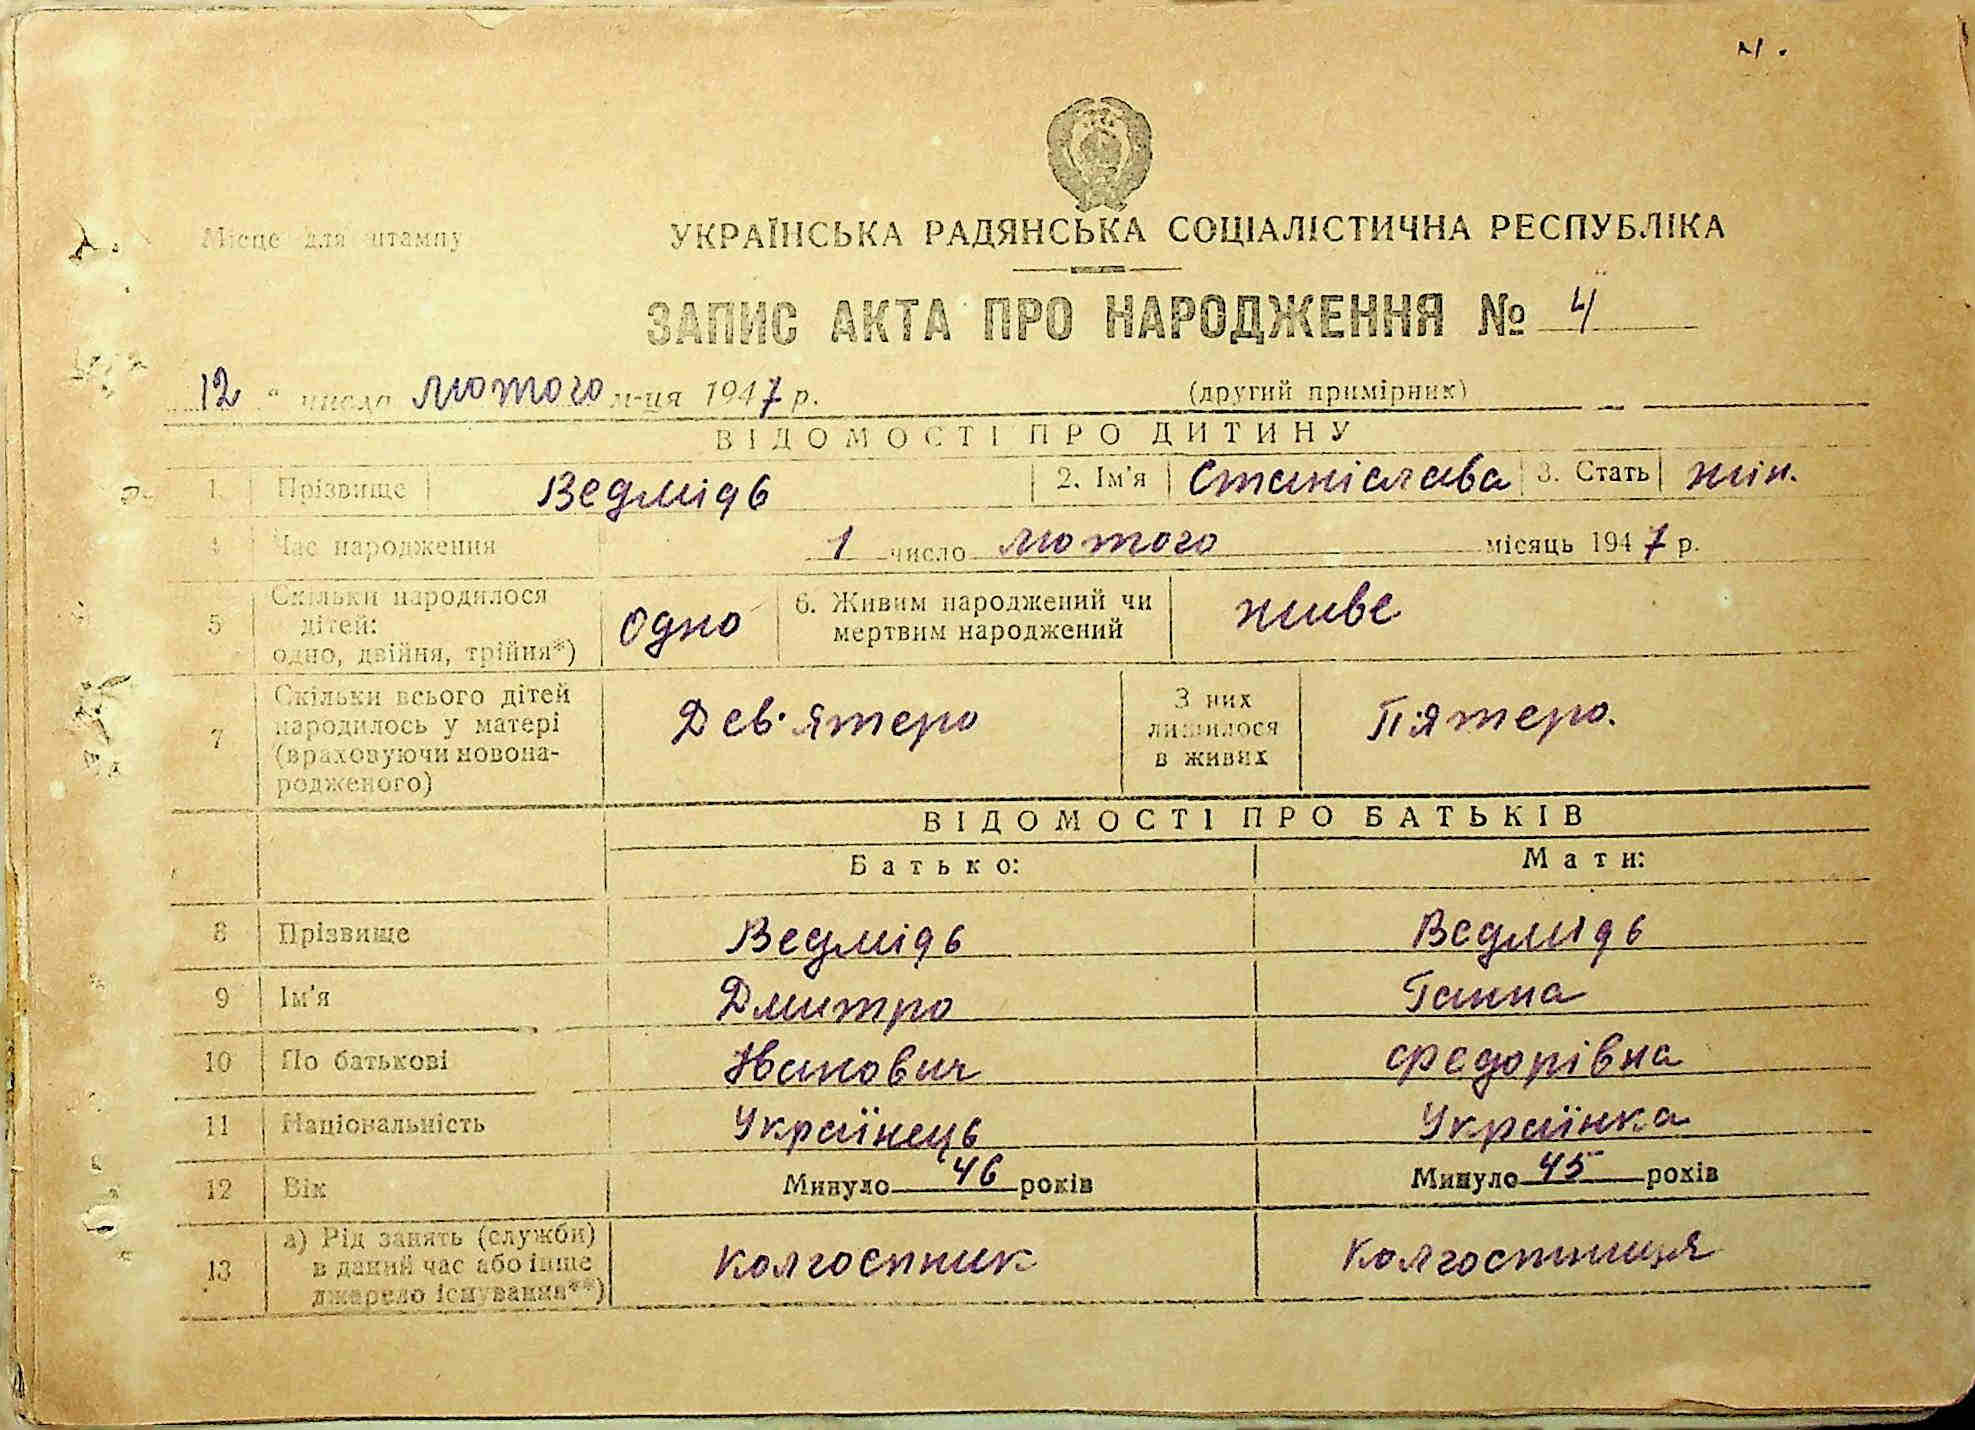 Місце для штампу
УКРАЇНСЬКА РАДЯНСЬКА СОЦІАЛІСТИЧНА РЕСПУБЛІКА
ЗАПИС АКТА ПРО НАРОДЖЕННЯ № 4
12 " число лютого м-ця 1947 р.
(другий примірник)
ВІДОМОСТІ ПРО ДИТИНУ
1. Прізвище Ведмідь 2. Ім'я Станіслава 3. Стать жін.
4 Час народження 1 число лютого місяць 1947 р.
5 Скільки народилося дітей: одно, двійня, трійня*) Одно 6. Живим народжений чи мертвим народжений живе
7 Скільки всього дітей народилось у матері (враховуючи новонародженого) Дев'ятеро З них лишилося в живих П'ятеро.
ВІДОМОСТІ ПРО БАТЬКІВ
Батько: Мати:
8 Прізвище Ведмідь Ведмідь
9 Ім'я Дмитро Ганна
10 По батькові Іванович Федорівна
11 Національність Українець Українка
12 Вік Минуло 46 років Минуло 45 років
13 а) Рід занять (служби) в даний час або інше джерело існування**) Колгоспник Колгоспниця